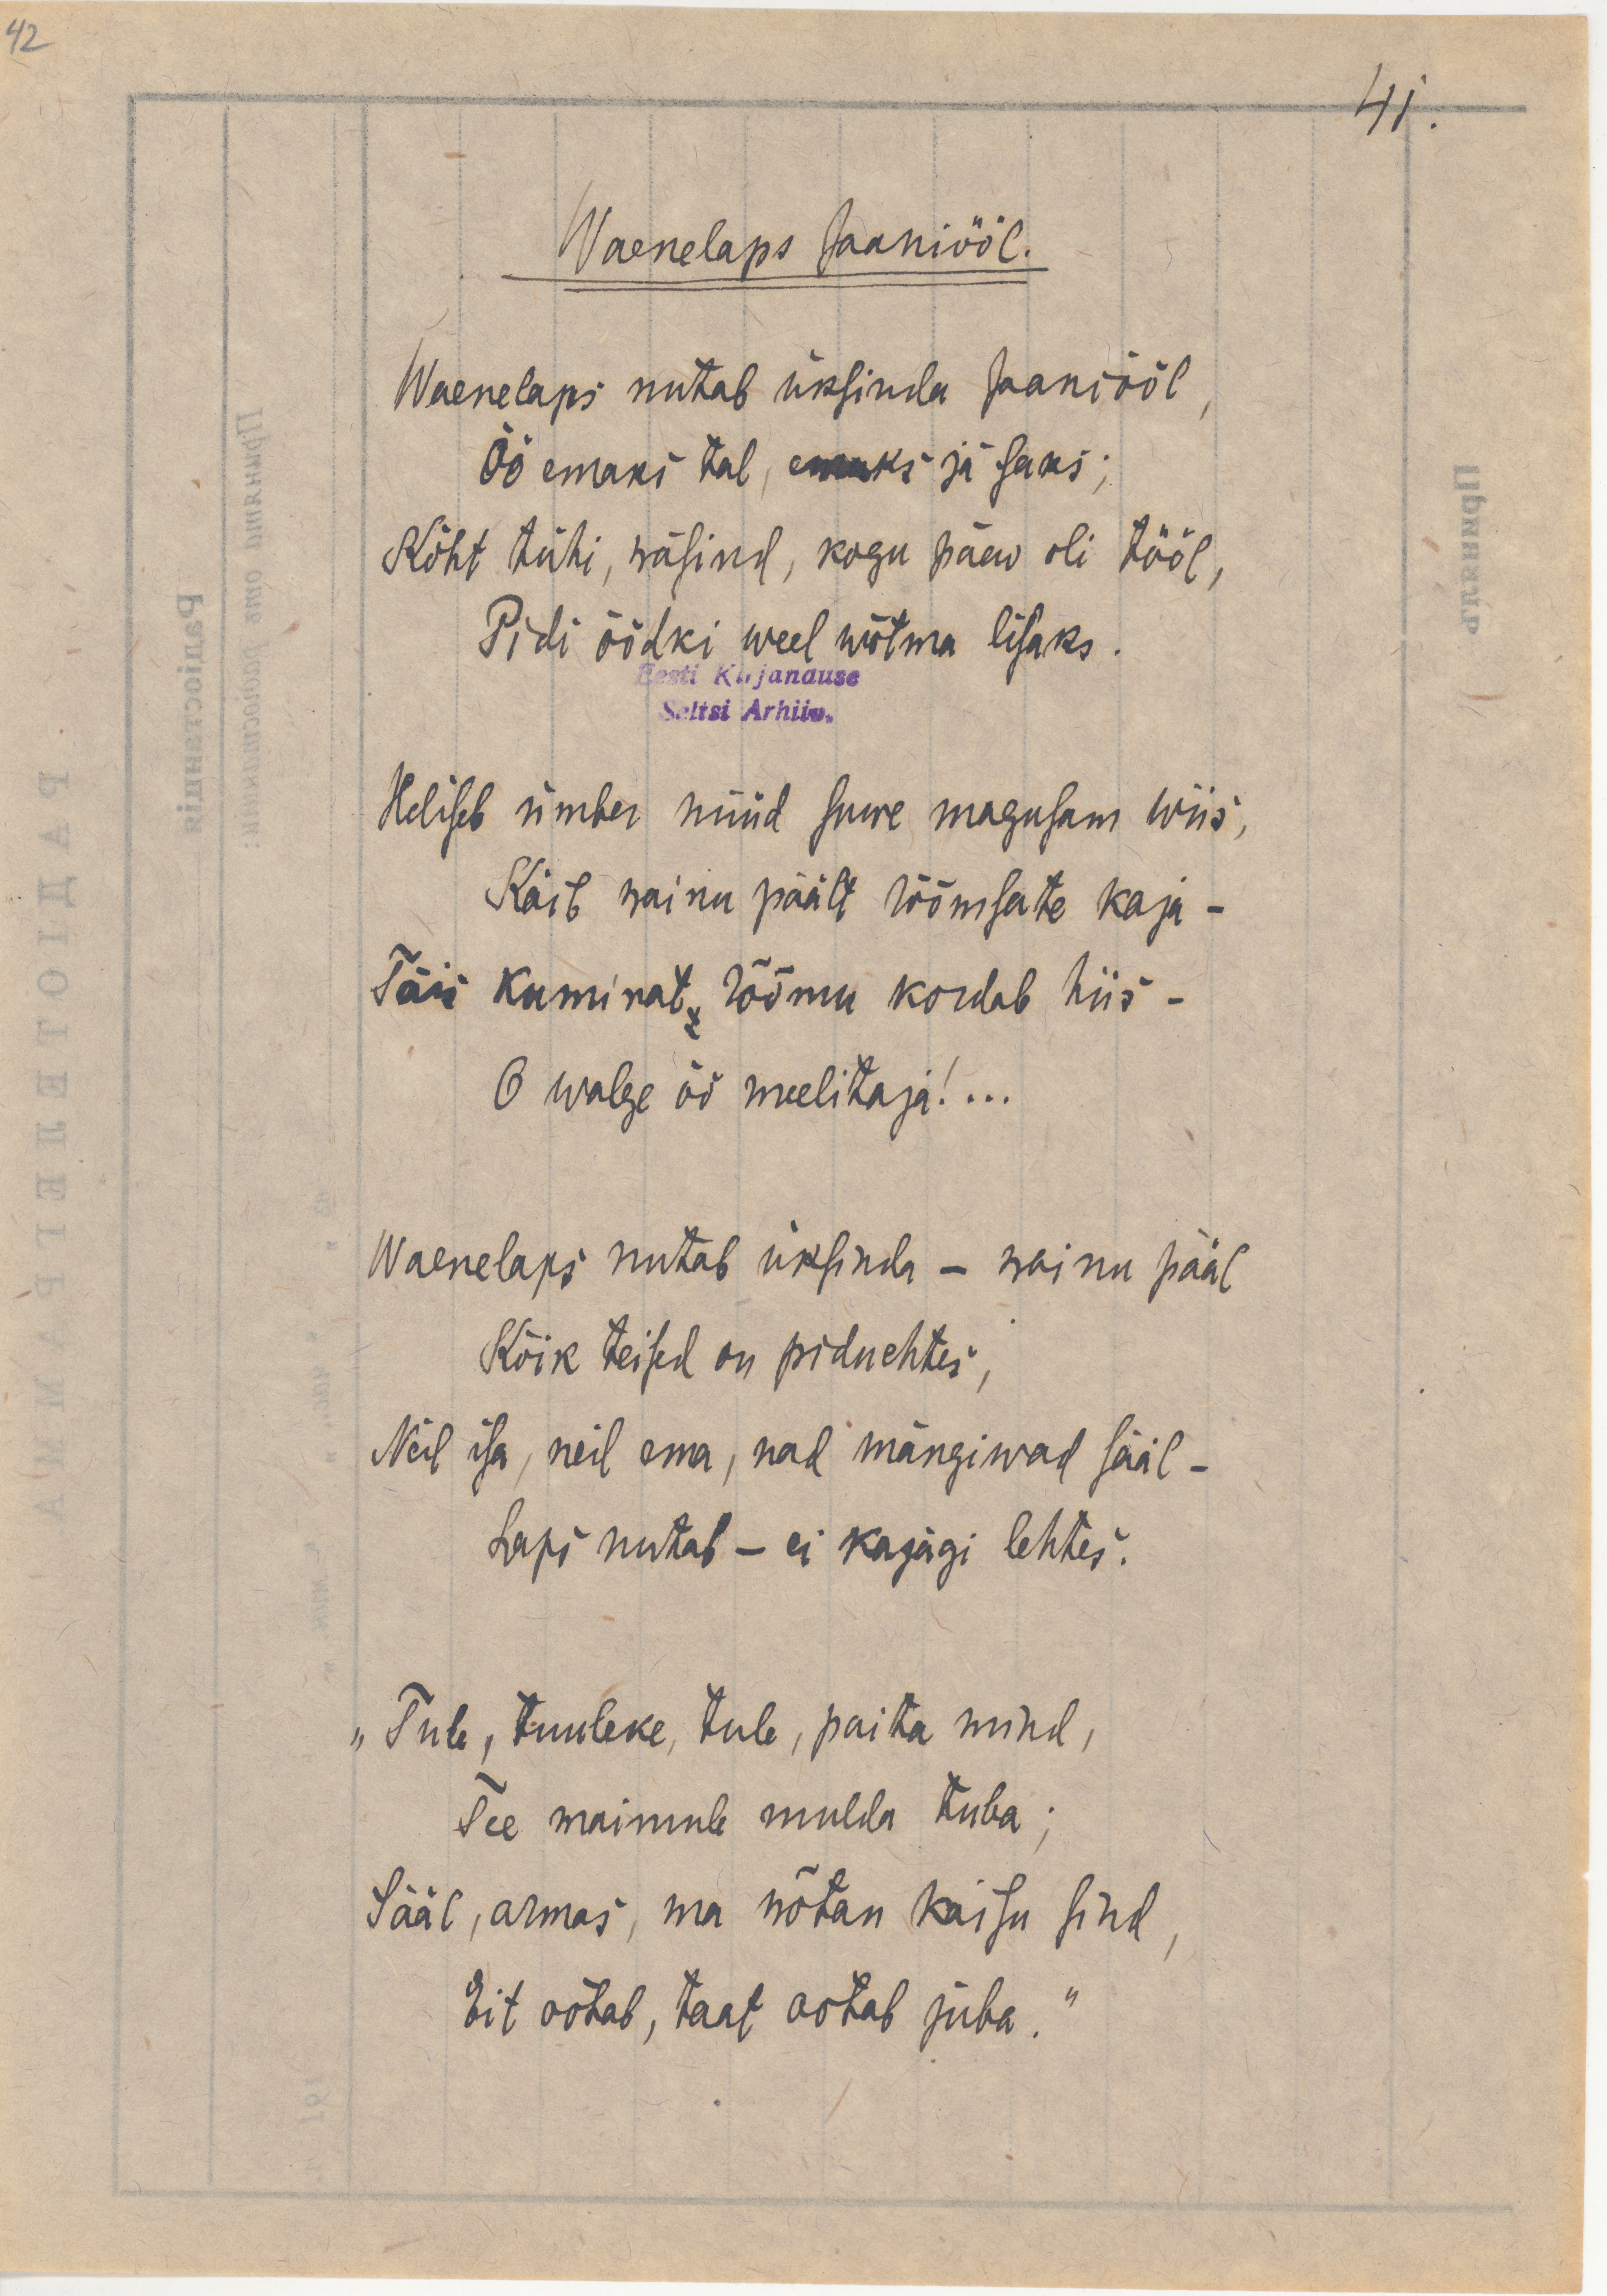 42
41.
Waenelaps Jaaniööl.
Waenelaps nutab üksinda Jaaniööl,
Öö emaks tal, emaks ja isaks;
Kõht tühi, wäsind, kogu päew oli tööl,
Pidi öödki weel wõtma lisaks.
Eesti Kirjanduse
Seltsi Arhiiv.
Heliseb ümber nüüd suwe magusam wiis,
Käib wainu päält rõõmsate kaja –
Täis kuminat, rõõmu kordab hiis –
O walge öö meelitaja!...
Waenelaps nutab üksinda – wainu pääl
Kõik teised on piduehtes,
Neil isa, neil ema, nad mängiwad sääl –
Laps nutab – ei kajagi lehtes.
„Tule, tuuleke, tule, paita mind,
Tee wainule mulda tuba;
Sääl, armas, ma wõtan kaisu sind,
Eit ootab, taat ootab juba."
РАДІОТЕЛЕГРАММА
Радіостанція
Принята отъ радіостанціи:
Принялъ